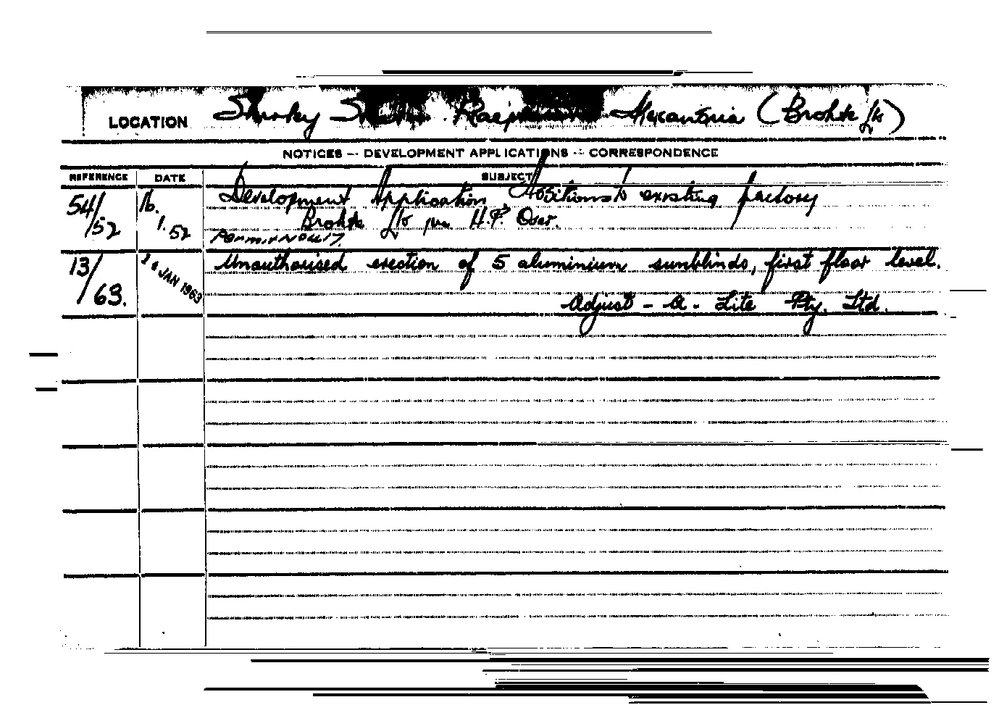 LOCATION Alexandria (Brohite f/k)
NOTICES -- DEVELOPMENT APPLICATIONS -- CORRESPONDENCE
REFERENCE DATE SUBJECT
54/52 16.1.52 Development Application Additions to existing factory
H.P. Over.
Permit No 417.
13/63. JAN 1963 Unauthorised erection of 5 aluminium sunblinds, first floor level.
Adjust - A - Lite Pty. Ltd.